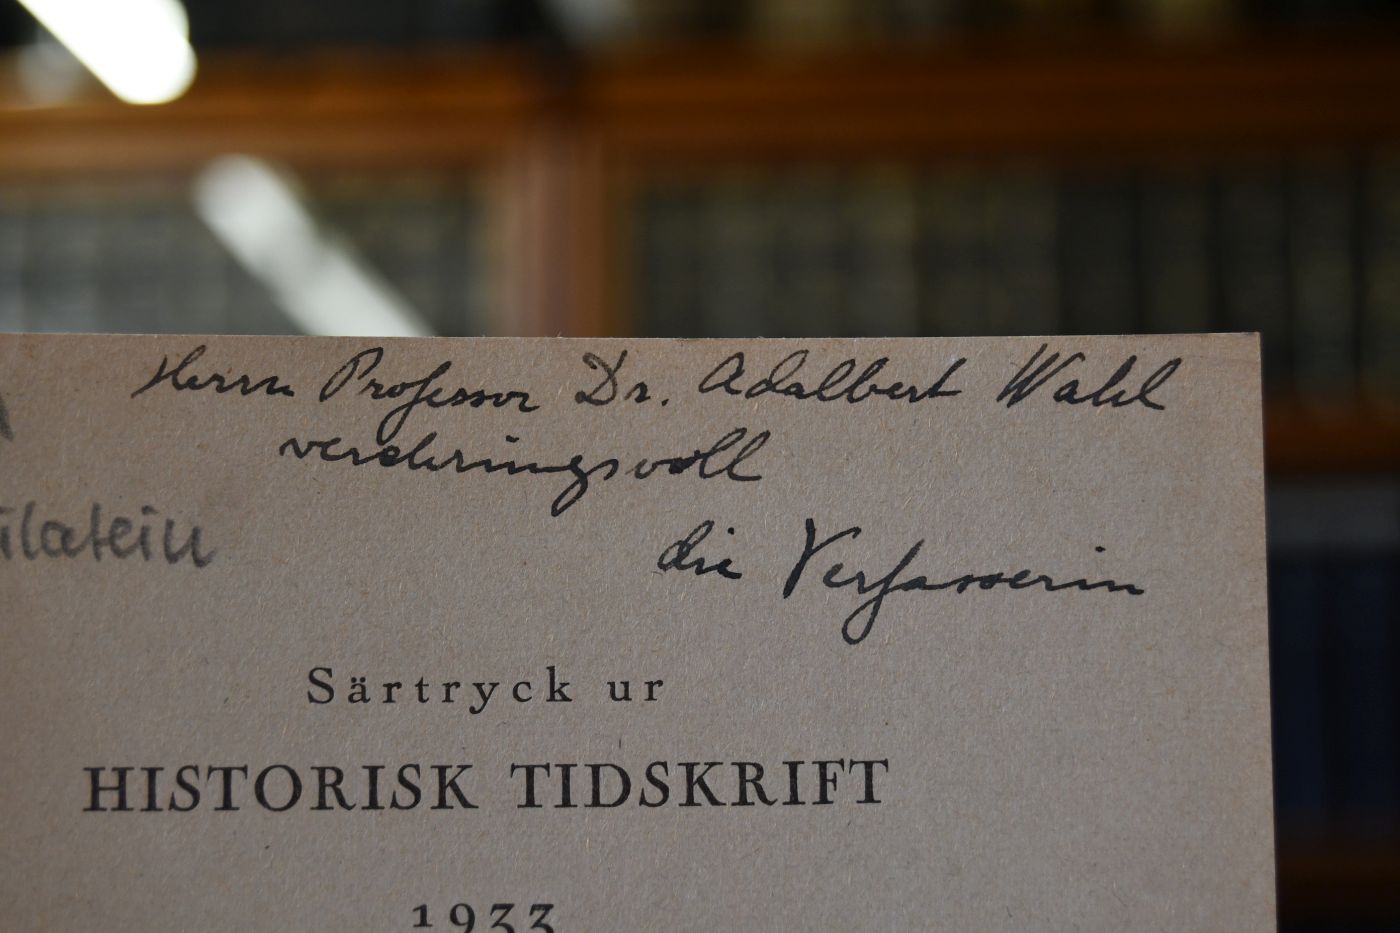 Herrn Professor Dr. Adalbert Wahl
verehrungsvoll
die Verfasserin
Särtryck ur
HISTORISK TIDSKRIFT
1933